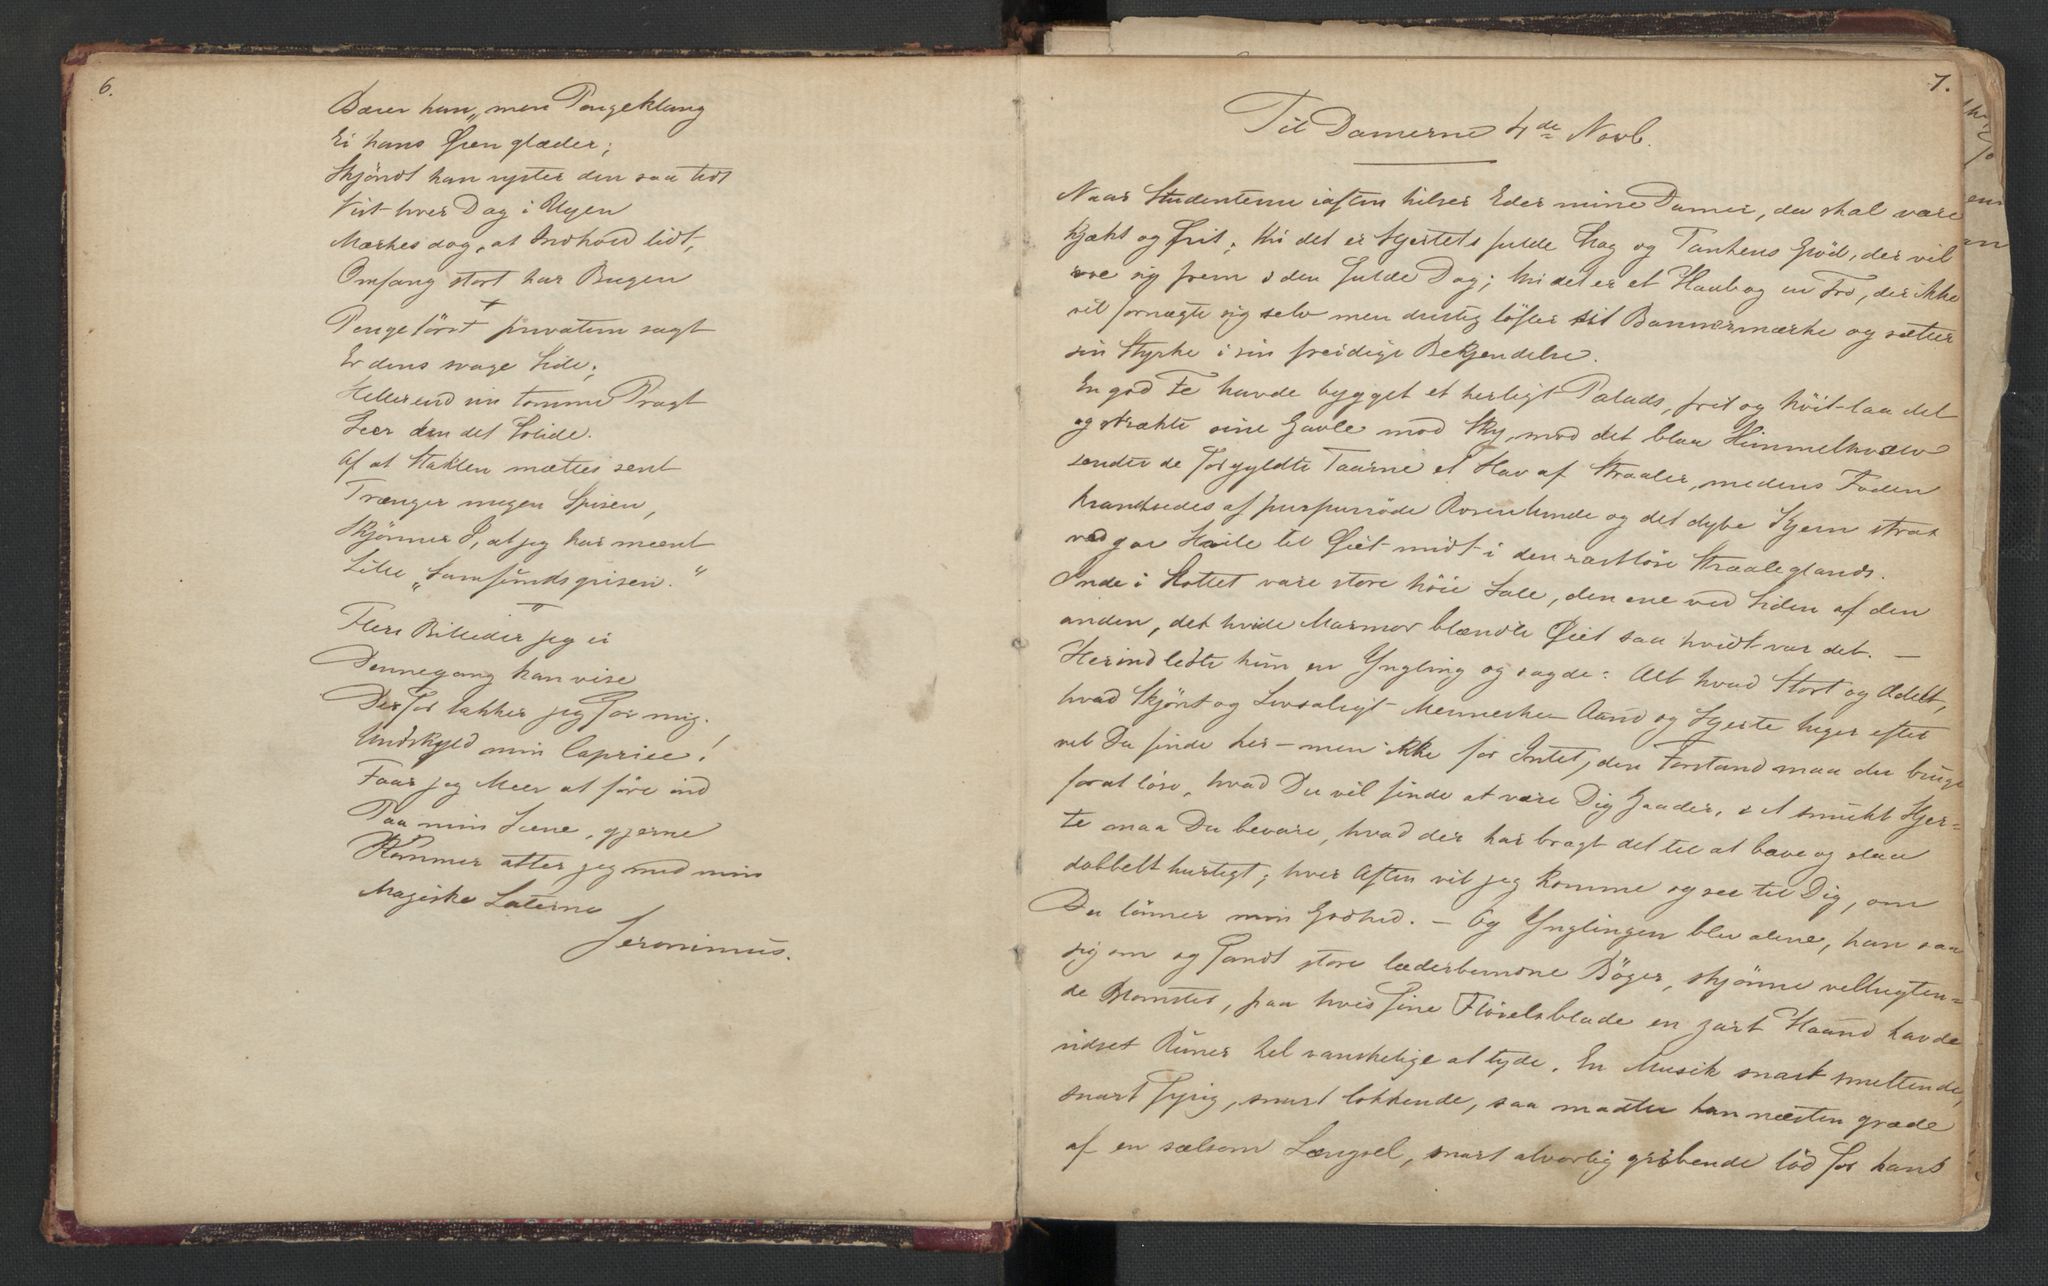 6.
Bærer han, men Pengeklang
Ei hans Øren glæder;
Skjöndt han ryster den saa tidt
Vist hver Dag i Ugen
Mærkes dog, at Indhold lidt,
Omfang stort har Bugen
+
Pengetörst privatim sagt
Er dens svage Side;
Heller end sin tomme Pragt
Seer den det Solide.
Af at Staklen mættes sent
Trænger megen Spisen,
Skjönner I, at jeg har meent
Lille "Samfundsgrisen."
Flere Billeder jeg ei
Dennegang kan vise
Derfor takker jeg for mig.
Undskyld min Caprice!
Faar jeg Meer at före ind
Paa min Scene, gjerne
Kommer atter jeg med min
Magiske Laterne
Jeronimus.
7.
Til Damerne 4de Novb.
Naar Studenterne iaften hilser Eder mine Damer, da skal være
kjækt og frit; thi det er Hjertets fulde Slag og Tankens Glöd, der vil
sig frem i den fulde Dag; thi det er et Haab og en Tro, der ikke
vil fornægte sig selv men dristig löfter sit Bannermærke og sætter
sin Styrke i sin freidige Bekjendelse.
En god Fe havde bygget et herligt Palads, frit og höit laa det
og strakte sine Gavle mod Sky, mod det blaa Himmelhvælv
sendte de forgyldte Taarne et Hav af Straaler, medens Foden
krandsedes af purpurröde Rosenlunde og det dybe Tjern strax
ved gav Hvile til Öiet midt i den rastlöse Straaleglands.
Inde i Slottet vare store höie Sale, den ene ved Siden af den
anden, det hvide Marmor blændte Öiet saa hvidt var det. —
Herind ledte hun en Yngling og sagde: Alt hvad Stort og Ædelt,
hvad Skjönt og Livsaligt Menneske-Aand og Hjerte higer efter
vil Du finde her – men ikke for Intet, den Forstand maa du bruge
for at löse, hvad Du vil finde at være Dig Gaader, et smukt Hjer=
te maa Du bevare, hvad der har bragt det til at bæve og slaa
dobbelt hurtigt; hver Aften vil jeg komme og see til Dig, om
Du lönner min Godhed. – Og Ynglingen blev alene, han saa
sig om og fandt store læderbundne Böger, skjönne vellugten=
de Blomster, paa hvis fine Flöielsblade en zart Haand havde
ridset Runer hel vanskelige at tyde. En Musik snart smeltende,
snart fyrig, snart lokkende, saa maatte han næsten græde
af en sælsom Længsel, snart alvorlig gribende lød for hans